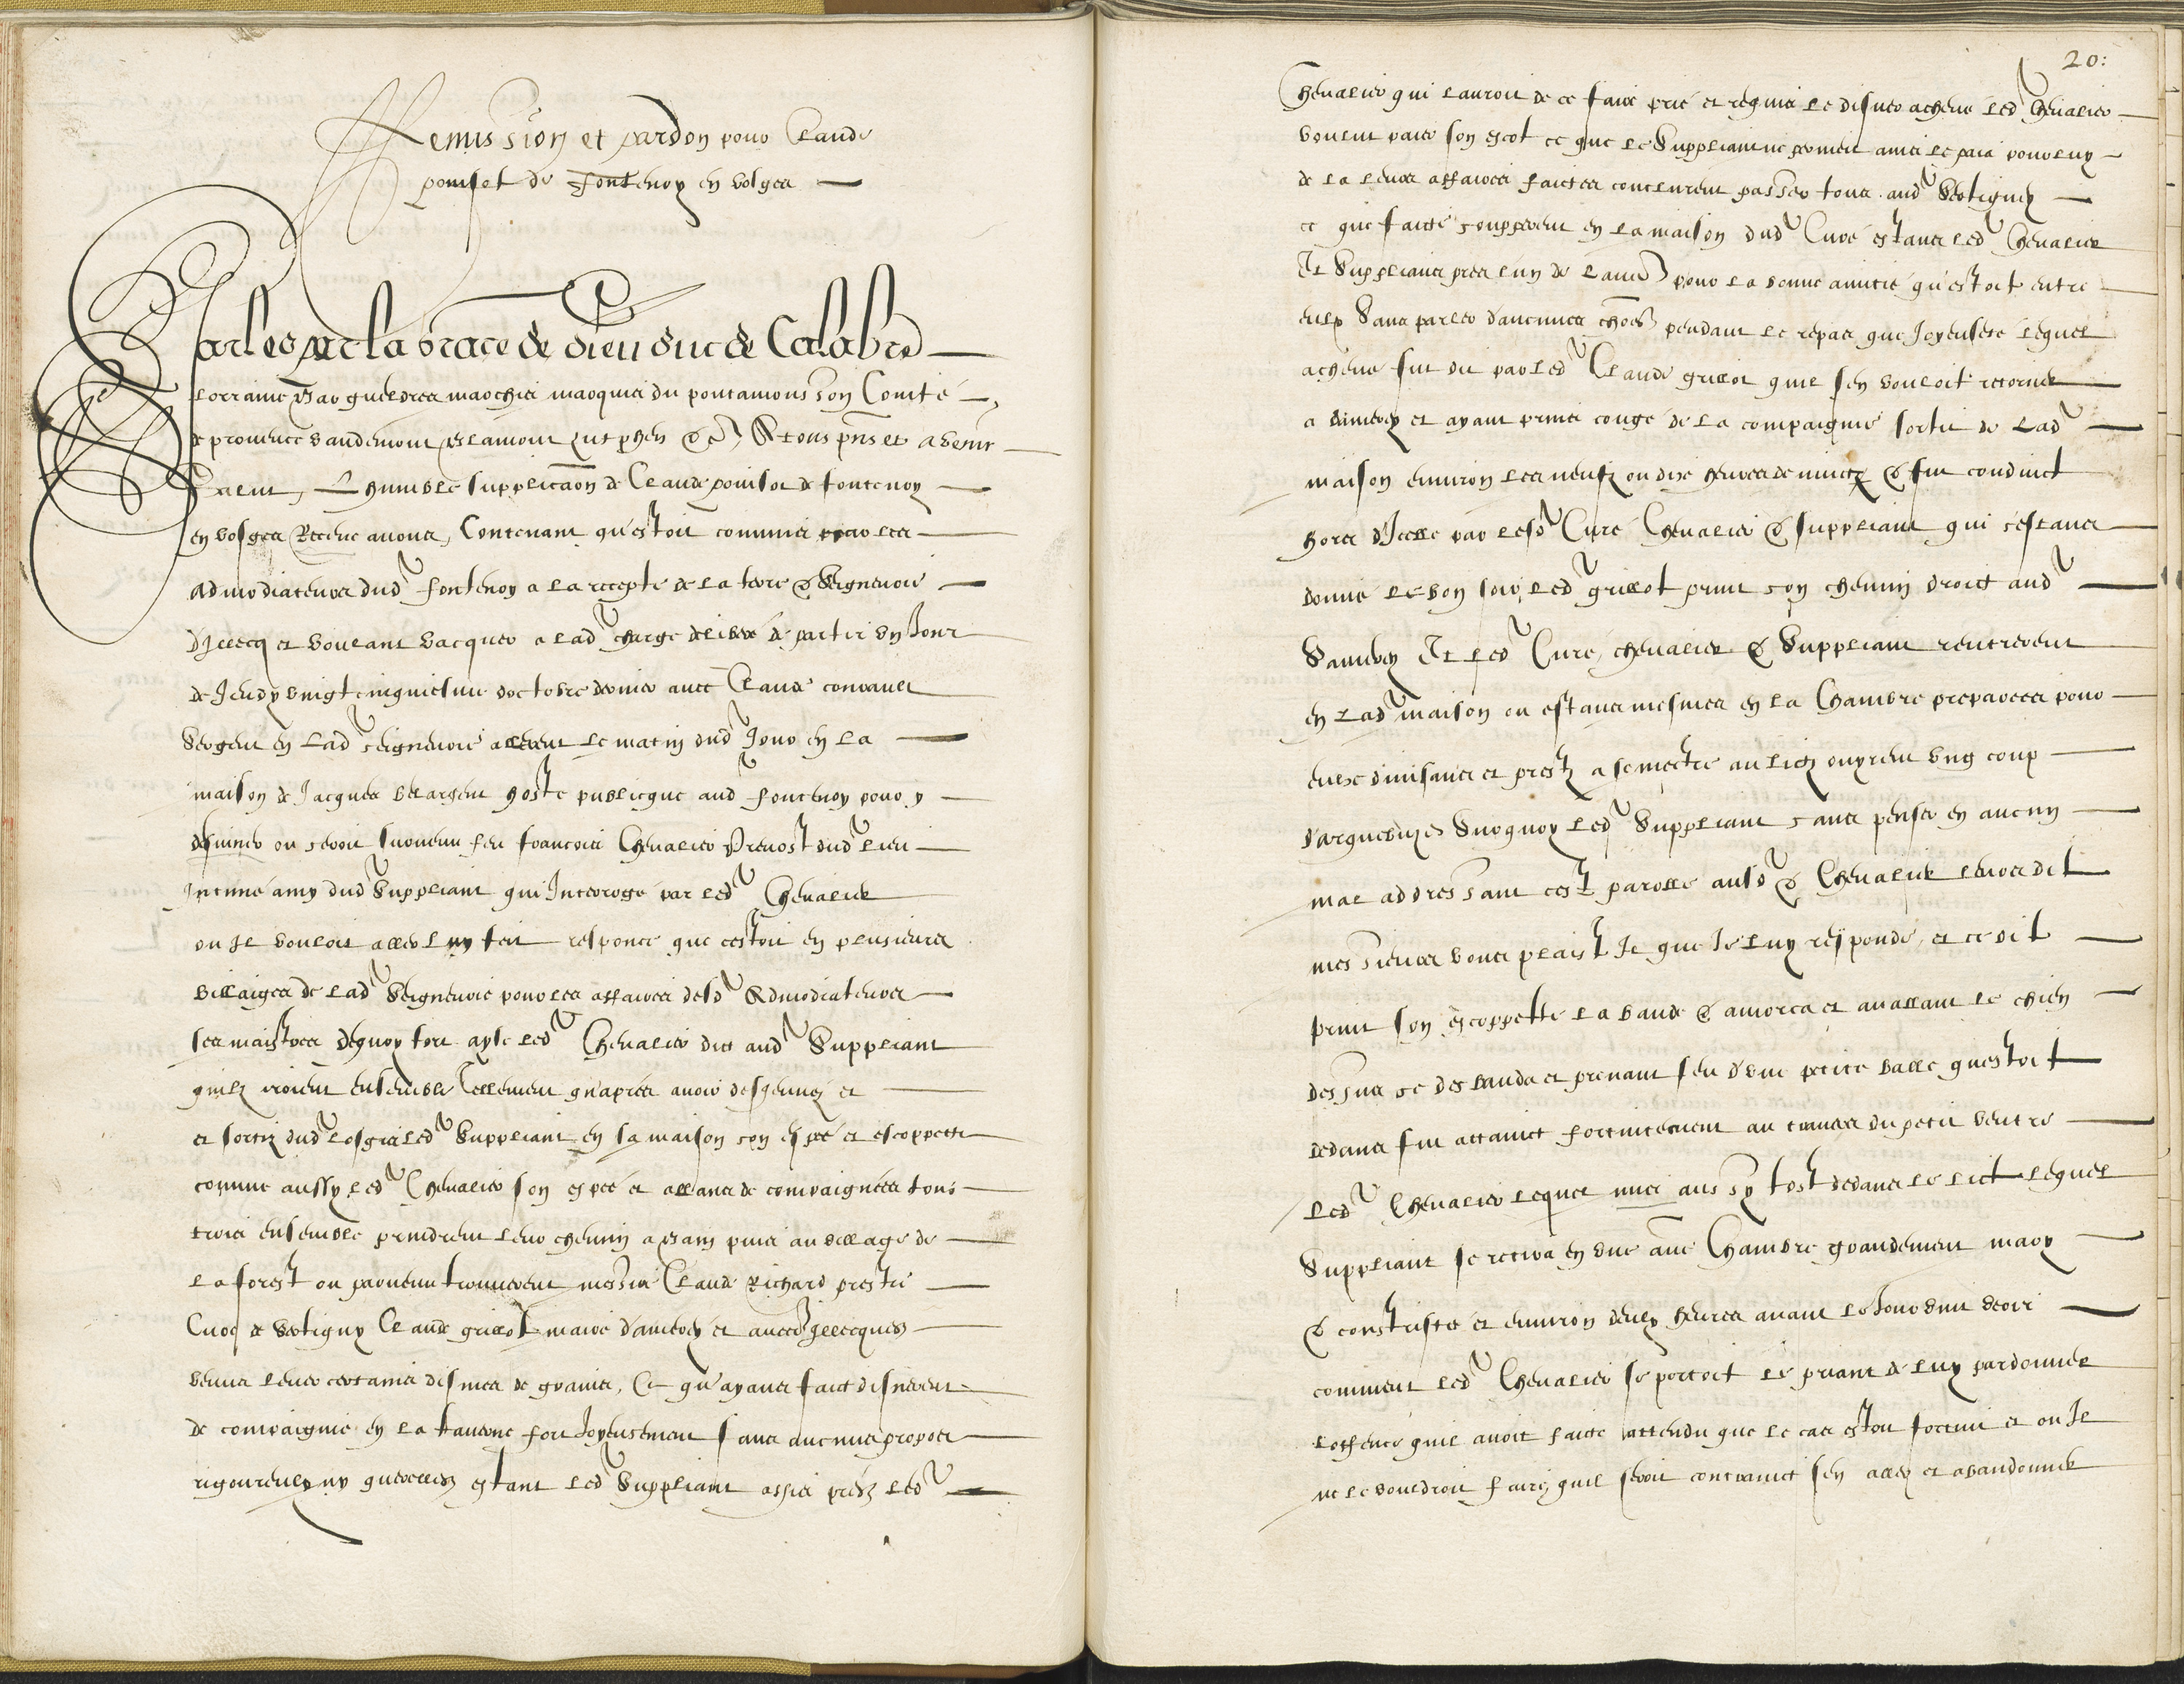 Remission et pardon pour Claude
pouisot de Fontenoy en vosges
Charles par la grace de dieu duc de Calabre
Lorraine Bar gueldres marchis marquis du pontamousson Comte
de provence vaudemont Blamont zutphen &c A tous pns et advenir
Salut, L humble supplicaon de Claude pouisot de fontenoy
en vosges Receue avons, Contenant qu'estoit commis par les
admodiateurs dud fontenoy a la recepte de la terre & Seigneurie
d'Illecq et voulant vacquer a lad charge delibera de partir un Jour
de Jeudy vingt cinquiesme doctobre dernier avec Claude
Sergent en lad seigneurie allerent le matin dud Jour en la
maison de Jacques hoste publicque aud fontenoy pour y
desjuner ou seroit survenu feu francois Chevalier Prevost dud lieu
Intime amy dud Suppliant qui Interogé par led Chevalier
ou Il vouloit aller luy feit responce que cestoit en plusieurs
villaiges de lad Seigneurie pour les affaires desd Admodiateurs
ses maistres dequoy fort ayse led Chevalier dict aud Suppliant
quilz iroient ensemble Tellement qu'apres avoir desjeunez et
et sortiz dud losgis led Suppliant en sa maison son espée et escoppette
comme aussy led Chevalier son espée et allans de compaignées tous
trois ensemble prindrent leur chemin a puis au village de
la forest ou parvenu trouverent messire Claude Richard prestre
Curé de Vertigny Claude grillot maire d'amerey et aultres Illecques
venus lever certains dismes de grains, Ce qu'ayans faict disnerent
de compaignie en la taverne fort Joyeusement sans aucuns propos
rigoureulx ny querelles estant led Suppliant assis prez led
20:
Chevalier qui lauroit de ce faire prié et requis le disner acheve led Chevalier
voulut paier son escot ce que le Suppliant ne permeit ains le paia pour luy
de la leurs affaires faictes conclurent passer tous aud Vertigny
ce que faict soupperent en la maison dud Curé estans led Chevalier
Et Suppliant pres lun de laultre pour la bonne amitié qu'estoit entre
eulx Sans parler d'aucunes choses pendant le repas que Joyeuseté lequel
achevé fut dit par led Claude grillot quil sen vouloit retorner
a damerey et ayant prins congé de la compaignie sortit de lad
maison environ les neufz ou dix heures de nuict & fut conduict
hors d'Icelle par lesd Curé Chevalier & suppliant qui sestans
donné le bon soir, led grillot print son chemin droict aud
Damerey Et led Curé, chevalier & Suppliant rentrerent
en lad maison ou estans mesmes en la Chambre preparées pour
eulx divisans et prestz a se mectre au lict ouyrent ung coup
d'arquebuze Surquoy led Suppliant sans penser en aucun
mal addressant cest parolle ausd & Chevalier leurs dit
messieurs vous plaist Il que Je luy responde, et ce dit
print son escoppette la banda & amorca et avallant le chien
dessus se desbanda et prenant feu d'une petite balle questoit
dedans fut attainct fortuitement au travers du petit ventre
led Chevalier lequel mis aussy tost dedans le lict lequel
Suppliant se retira en une aultre Chambre grandement marry
& constristé et environ deulx heures avant le Jour vint veoir
comment led Chevalier se portoit le priant de luy pardonner
loffence quil avoit faicte attendu que le cas estoit fortuit et ou Il
ne le vouldroit faire, quil seroit contrainct sen aller et abandonner